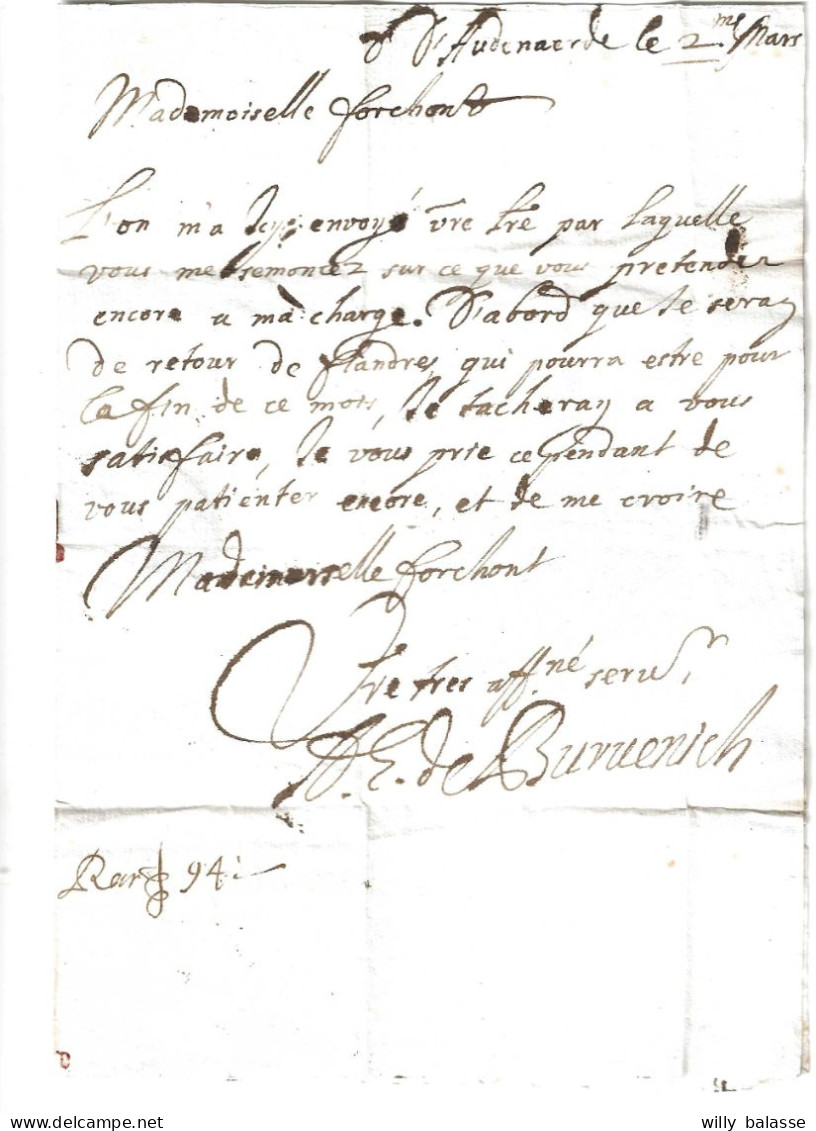 D'Audenaerde le 2.me Mars
Mademoiselle forchont
L'on m'a Icy envoyé vre tre par laquelle
vous me semoncez sur ce que vous pretendez
encore a ma charge. D'abord que Je seray
de retour de flandres, qui pourra estre pour
la fin de ce mois, Je tacheray a vous
satisfaire, Je vous prie cependant de
vous patienter encore, et de me croire
Mademoiselle forchont
Vre tres aff.né serv.r
de Buruenich
94
willy balasse